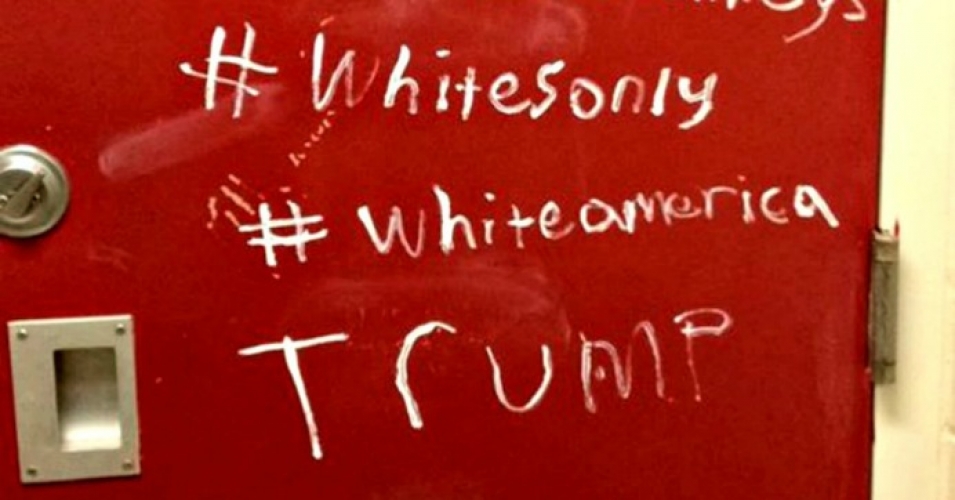 # Whitesonly
# whiteamerica
TrUMP